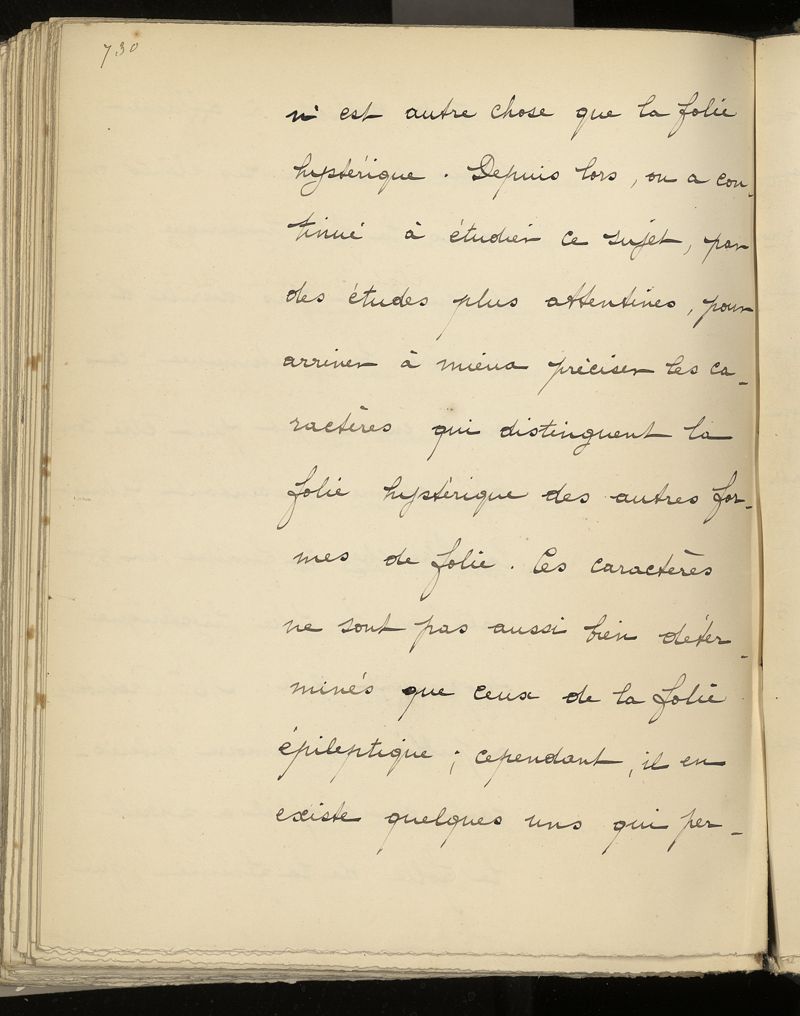 730
n'est autre chose que la folie
hystérique. Depuis lors, on a con-
tinué à étudier ce sujet, par
des études plus attentives, pour
arriver à mieux préciser les ca-
ractères qui distinguent la
folie hystérique des autres for-
mes de folie. Ces caractères
ne sont pas aussi bien déter-
minés que ceux de la folie
épileptique ; cependant, il en
existe quelques uns qui per-